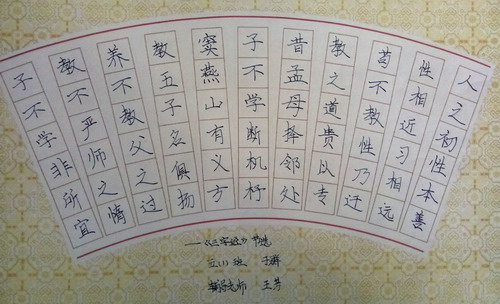 人之初性本善
性相近习相远
苟不教性乃迁
教之道贵以专
昔孟母择邻处
子不学断机杼
窦燕山有义方
教五子名俱扬
养不教父之过
教不严师之惰
子不学非所宜
——《三字经》节选
五(1)班 于群
辅导老师 王芳